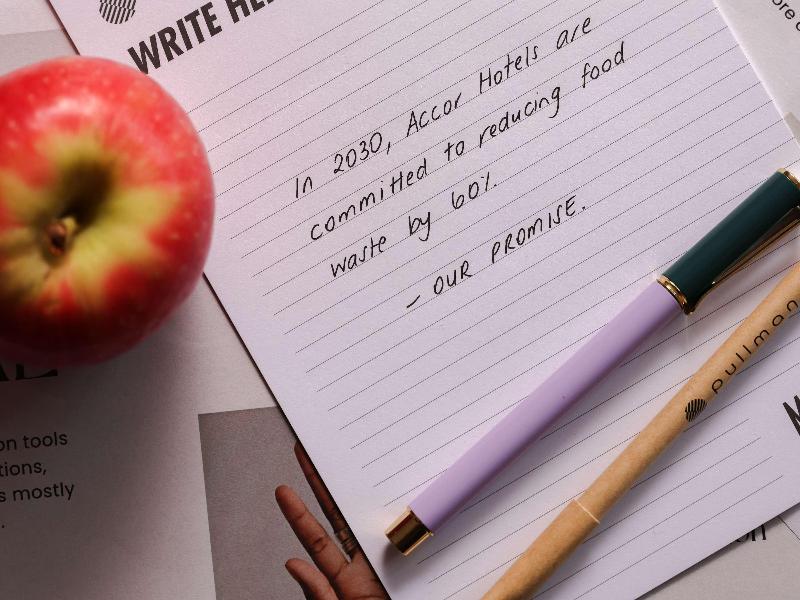 WRITE
In 2030, Accor Hotels are
committed to reducing food
waste by 60%.
– OUR PROMISE.
pullman
on tools
tions,
s mostly
.